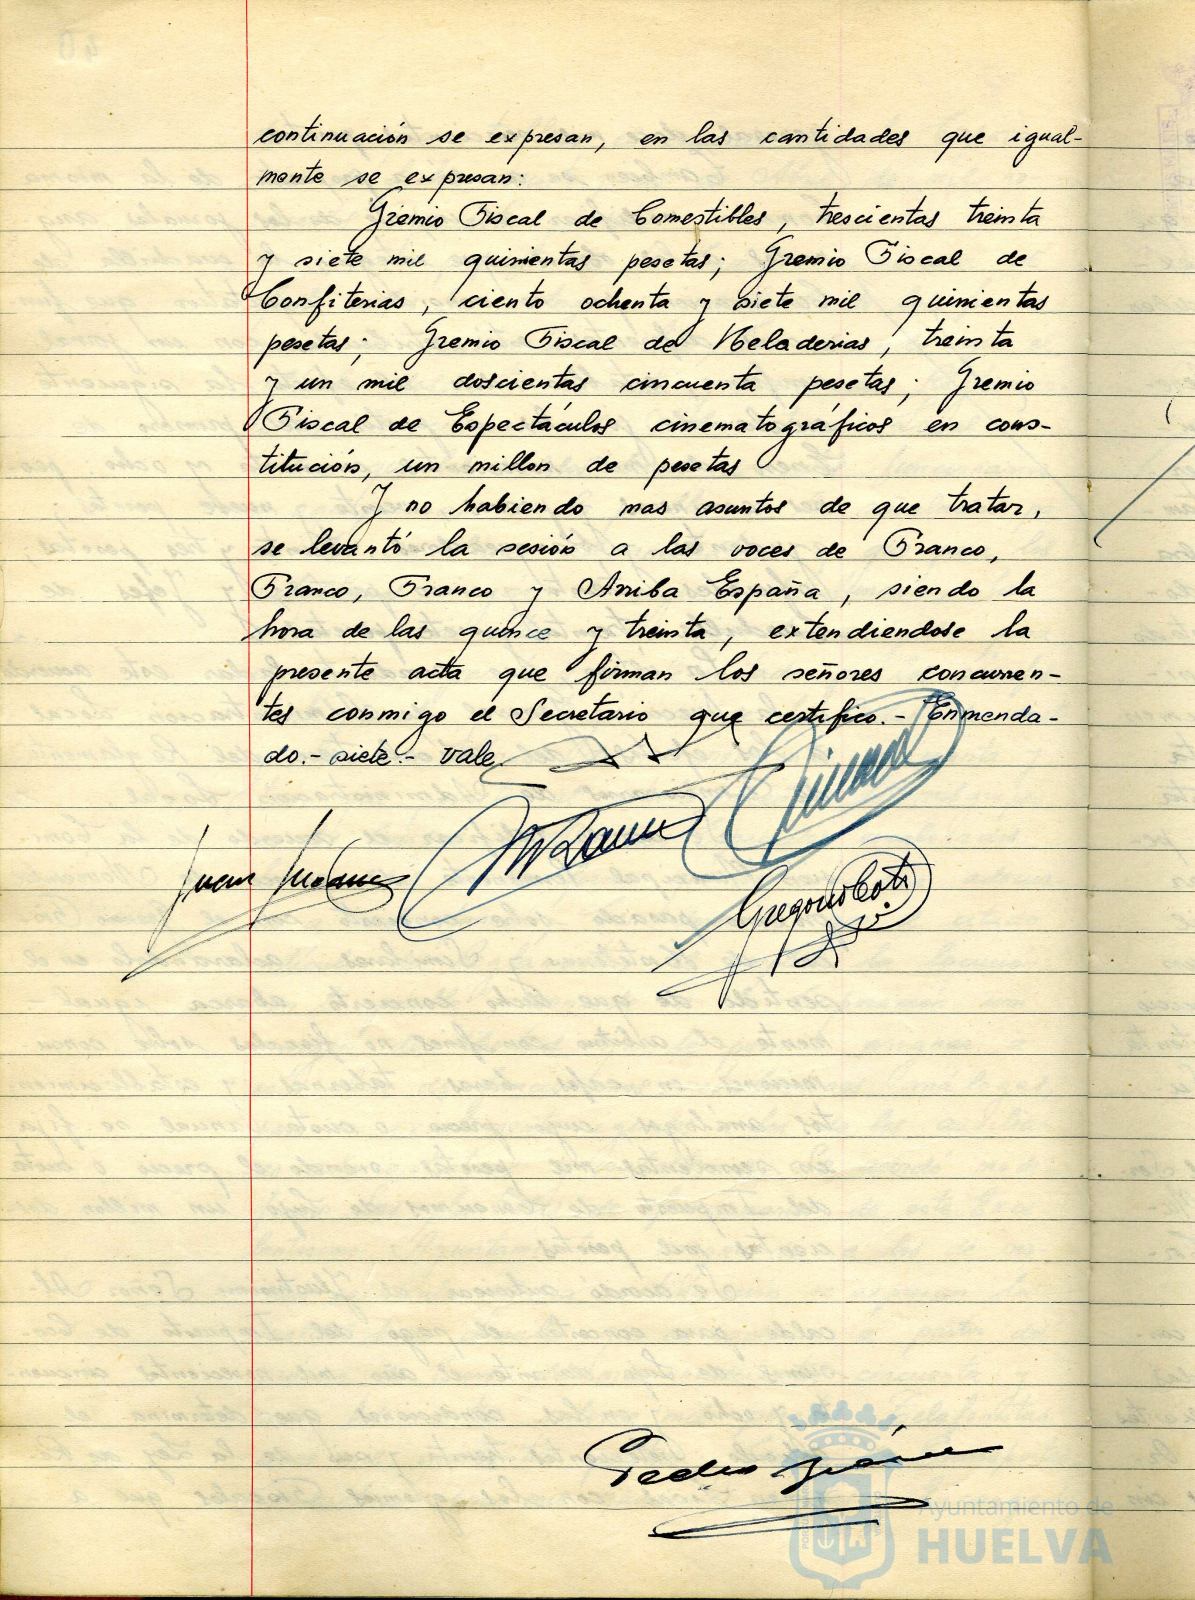 continuación se expresan, en las cantidades que igual-
mente se expresan:
Gremio Fiscal de Comestibles, trescientas treinta
y siete mil quinientas pesetas; Gremio Fiscal de
Confiterias, ciento ochenta y siete mil quinientas
pesetas; Gremio Fiscal de Heladerias, treinta
y un mil doscientas cincuenta pesetas; Gremio
Fiscal de Espectáculos cinematográficos en cons-
titución, un millon de pesetas
Y no habiendo mas asuntos de que tratar,
se levantó la sesión a las voces de Franco,
Franco, Franco y Arriba España, siendo la
hora de las quince y treinta, extendiendose la
presente acta que firman los señores concurren-
tes conmigo el Secretario que certifico.- Enmenda-
do.- siete.- vale
Juan
Gregorio
Pedro
Ayuntamiento de
HUELVA